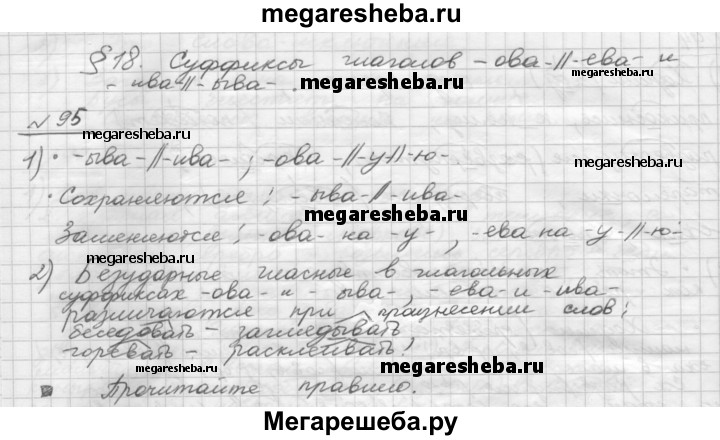 megaresheba.ru
§18. Суффиксы глаголов -ова-//-ева- и
-ива-//-ыва-.
megaresheba.ru
№95
megaresheba.ru
1) • -ыва-//-ива- ; -ова-//-у-//-ю-.
megaresheba.ru
• Сохраняются: -ыва-//-ива-
megaresheba.ru
Заменяются: -ова- на -у- , -ева на -у-//-ю-
megaresheba.ru
2) Безударные гласные в глагольных
суффиксах -ова- и -ыва-, -ева- и -ива-
megaresheba.ru
различаются при произнесении слов:
беседовать – заглядывать
горевать – расклеивать!
megaresheba.ru
Прочитайте правило.
megaresheba.ru
Мегарешеба.ру